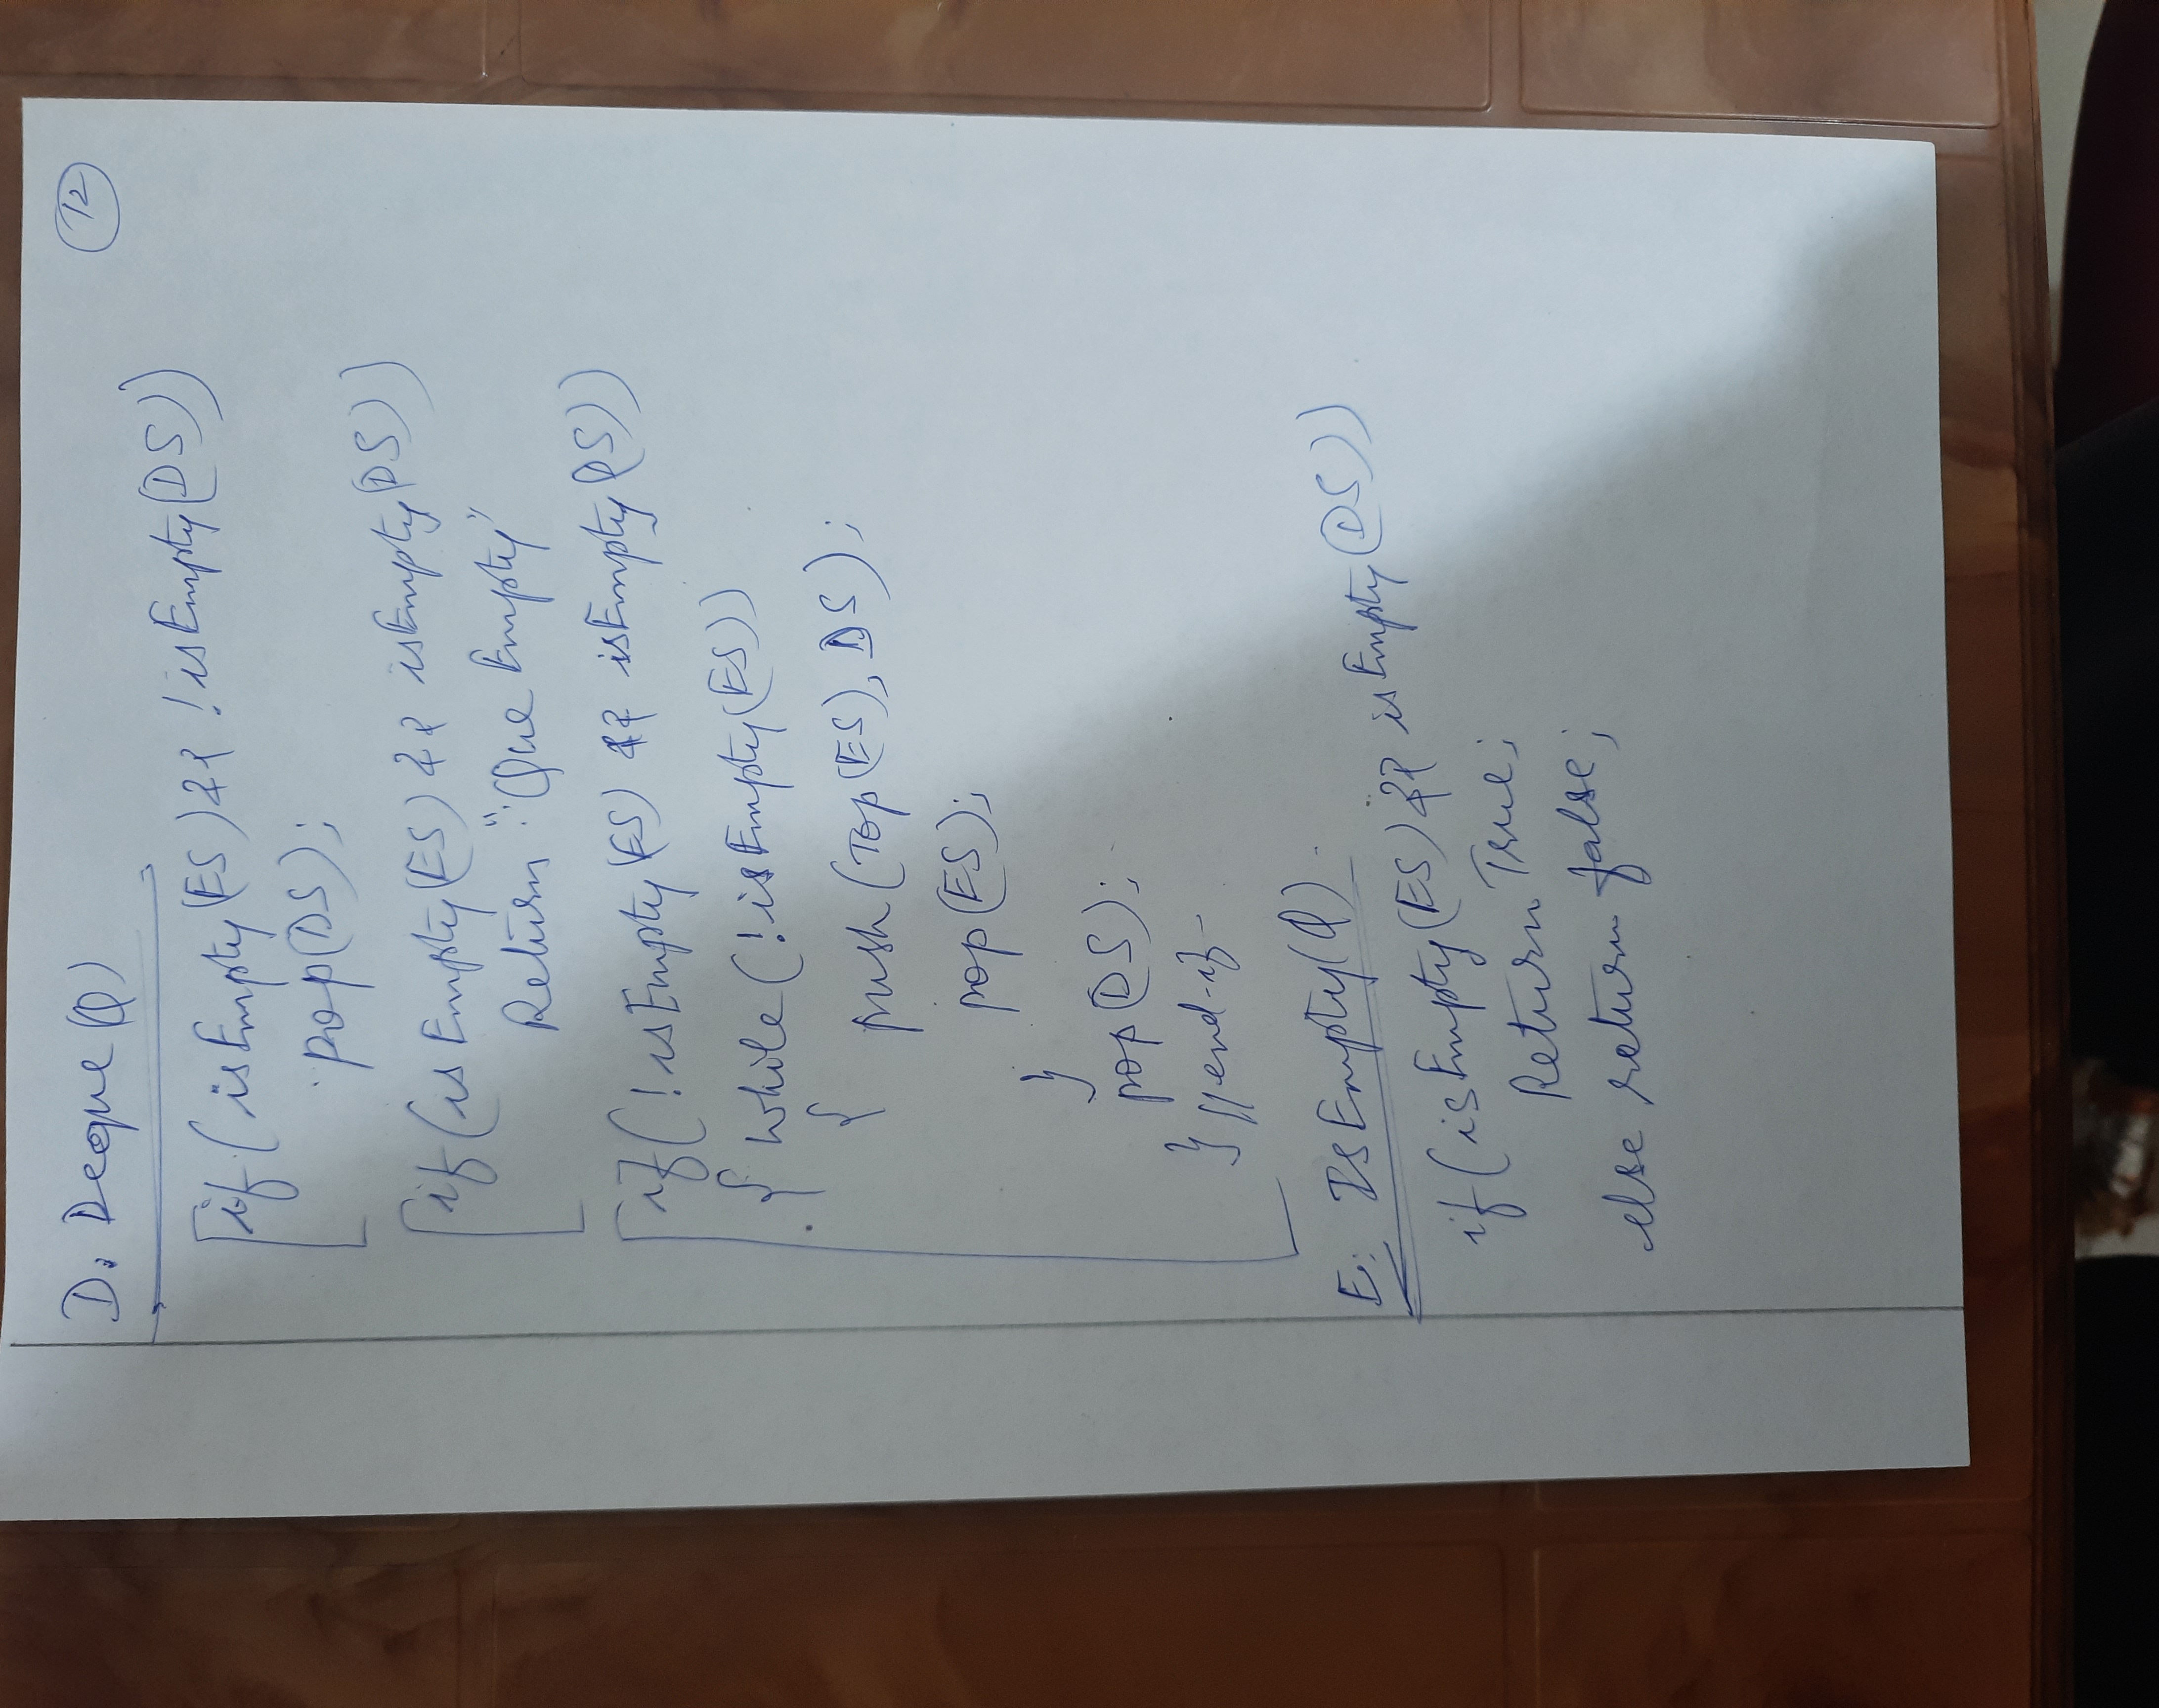 12
D. Deque(Q)
if (isEmpty(ES) && !isEmpty(DS))
pop(DS);
if (isEmpty(ES) && isEmpty(DS))
Return "Que Empty"
if (!isEmpty(ES) && isEmpty(DS))
{ while (!isEmpty(ES))
{ push (Top(ES), DS);
pop(ES);
}
pop(DS);
} //end-if-
E: IsEmpty(Q)
if (isEmpty(ES) && isEmpty(DS))
Return True;
else return false;